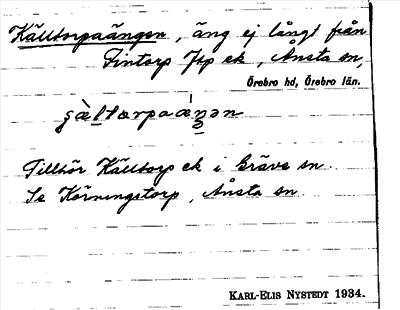 Källtorpaängen, äng ej långt från
Tintorp Jtp ek, Ånsta sn,
Örebro hd, Örebro län.
Tillhör Källtorp ek i Gräve sn.
Se Körningstorp, Ånsta sn
KARL-ELIS NYSTEDT 1934.